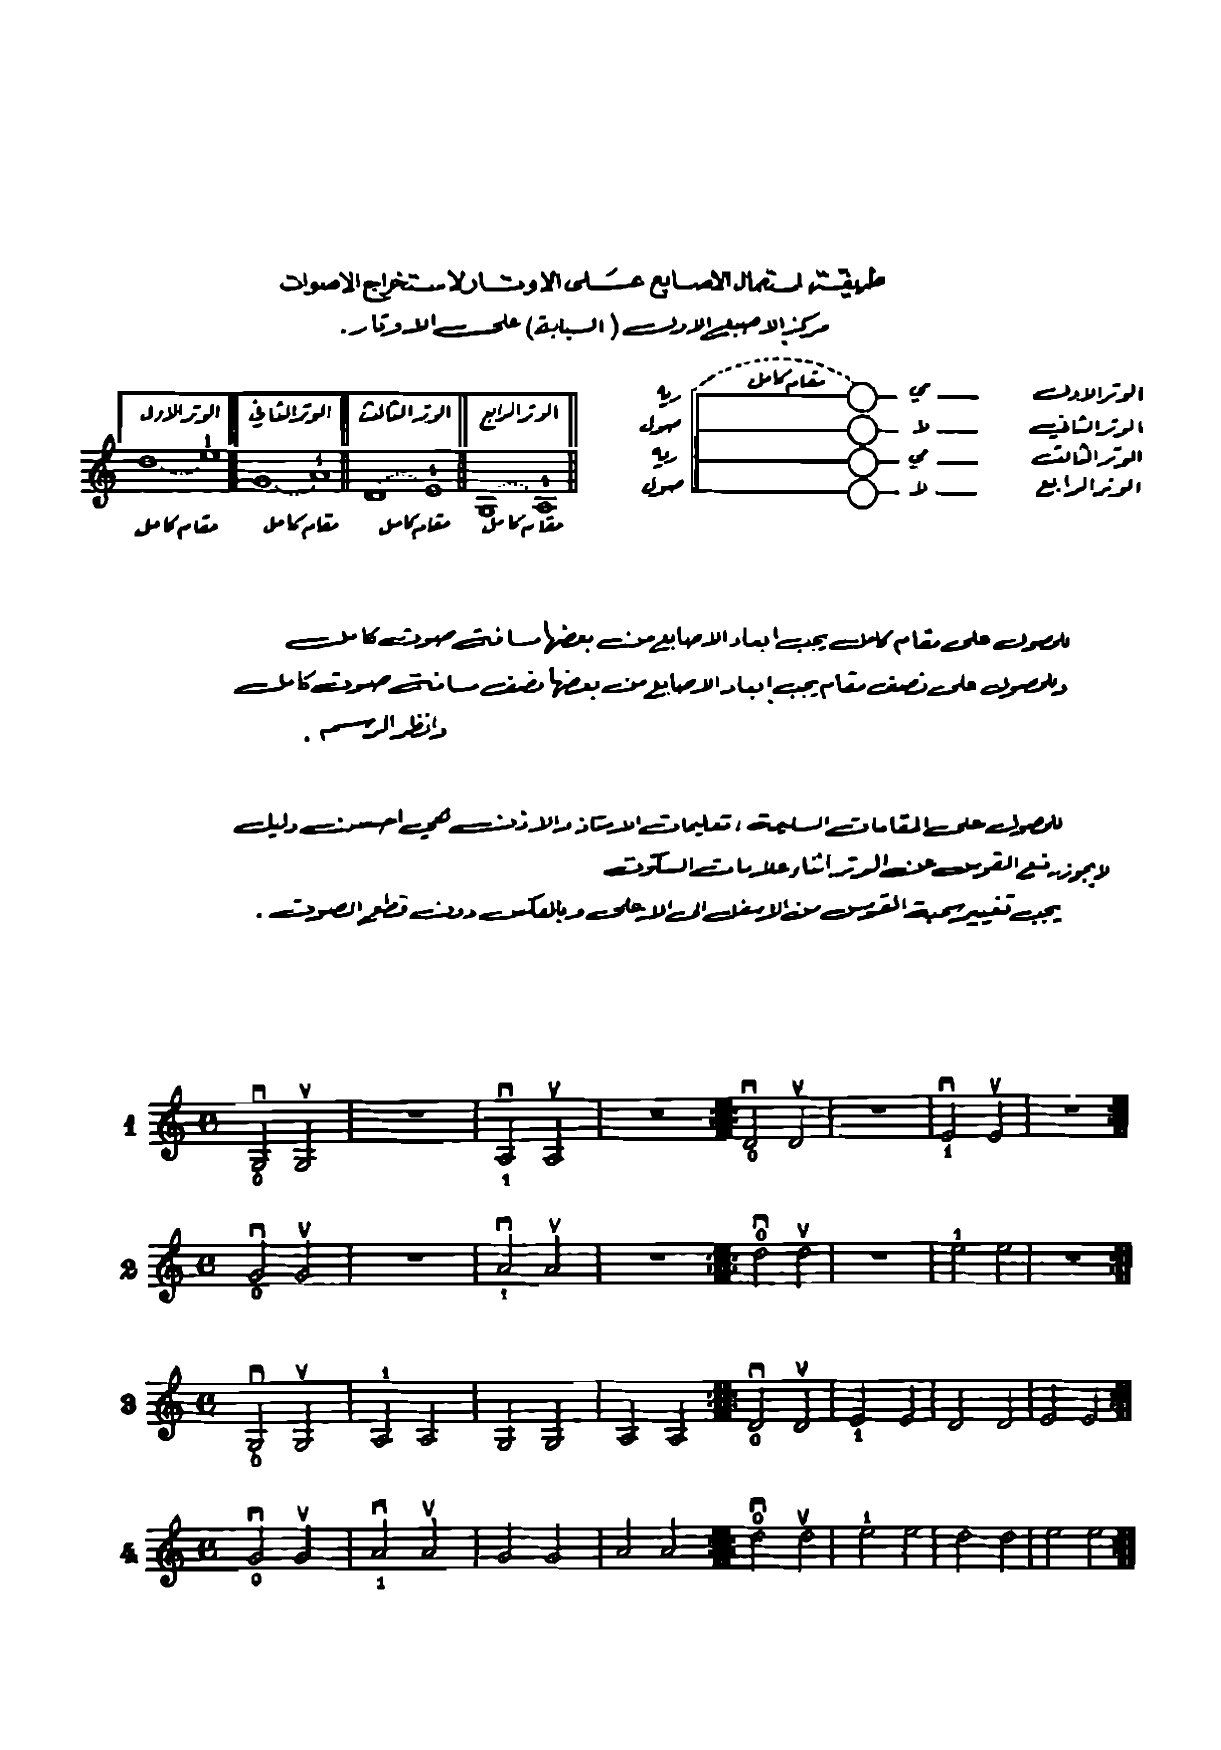 طريقة استعمال الاصابع على الاوتار لاستخراج الاصوات
مركز الاصبع الاول (السبابة) على الاوتار.
الوتر الاول الوتر الثاني الوتر الثالث الوتر الرابع
1 1 1 1
مقام كامل مقام كامل مقام كامل مقام كامل
مقام كامل
الوتر الاول مي ريه
الوتر الثاني لا صول
الوتر الثالث مي ريه
الوتر الرابع لا صول
للحصول على مقام كامل يجب ابعاد الاصابع من بعضها مسافة صوت كامل
وللحصول على نصف مقام يجب إبعاد الاصابع من بعضها نصف مسافة صوت كامل
وانظر الرسم .
للحصول على المقامات السليمة ، تعليمات الاستاذ والاذن هي احسن دليل
لا يجوز رفع القوس عن الوتر اثناء علامات السكوت
يجب تغيير سحبة القوس من الاسفل الى الاعلى وبالعكس دون قطع الصوت .
1
0 1 0 1
2
0 1
0 1
3
1
0 0 1
4
0 1
0 1